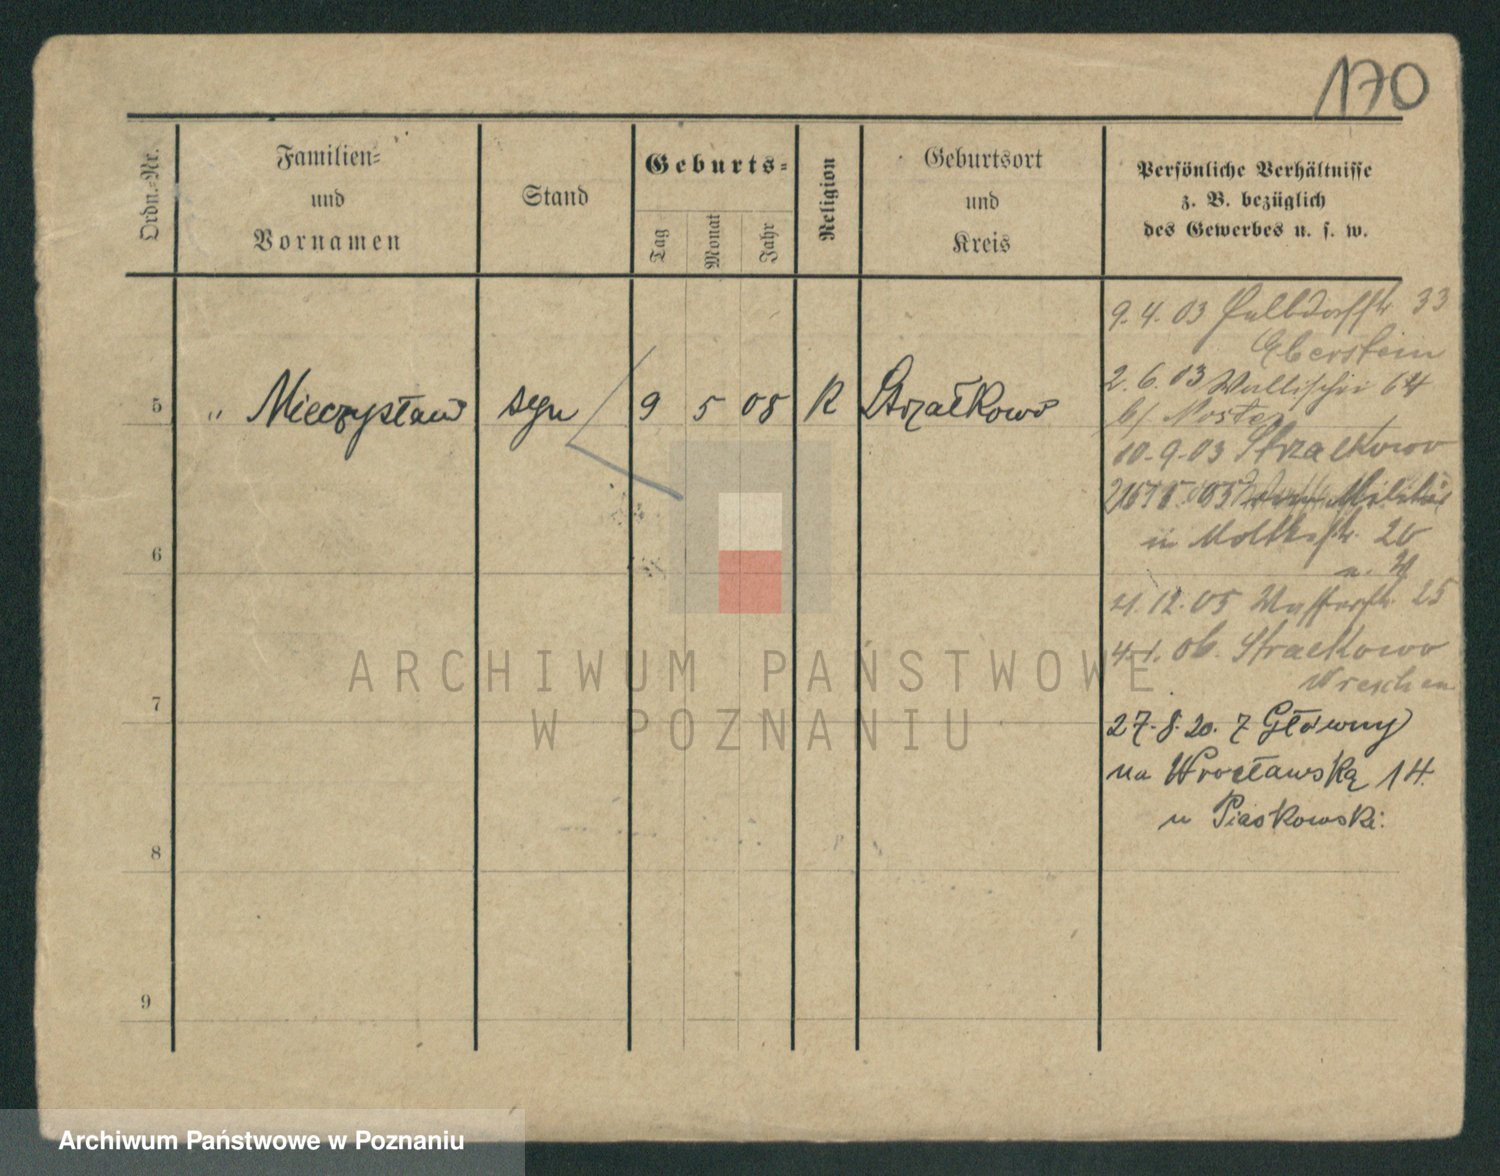 170
Ordn.-Nr.
Familien-
und
Vornamen
Stand
Geburts-
Tag
Monat
Jahr
Religion
Geburtsort
und
Kreis
Persönliche Verhältnisse
z. B. bezüglich
des Gewerbes u. s. w.
5 " Mieczysław syn 9 5 08 R Strzałkowo
6
7
8
9
9. 4. 03 33
Eberstein
2. 6. 03 Wallischei 64
b/
10. 9. 03 Strzalkowo
05 Militär
in Moltkestr. 20
12. 05 25
4. 1. 06. Stralkowo
Wreschen
27. 8. 20. z Główny
na Wrocławską 14.
u Piaskowski.
ARCHIWUM PAŃSTWOWE
W POZNANIU
Archiwum Państwowe w Poznaniu